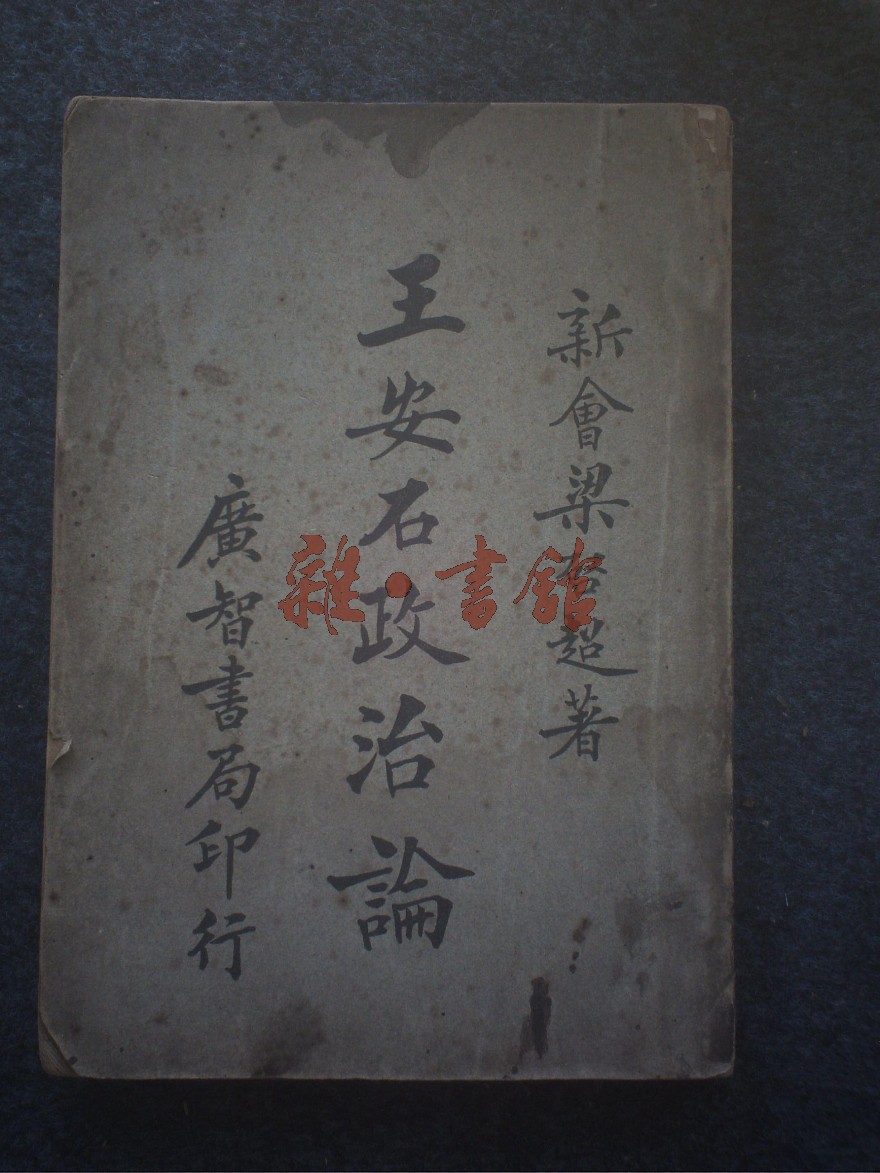 新會梁啓超著
王安石政治論
廣智書局印行
雜·書館